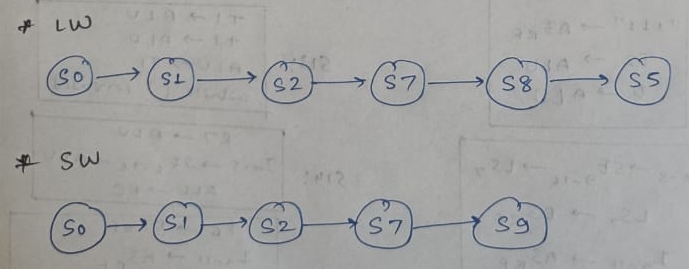 * LW
S0 → S1 → S2 → S7 → S8 → S5
* SW
S0 → S1 → S2 → S7 → S9